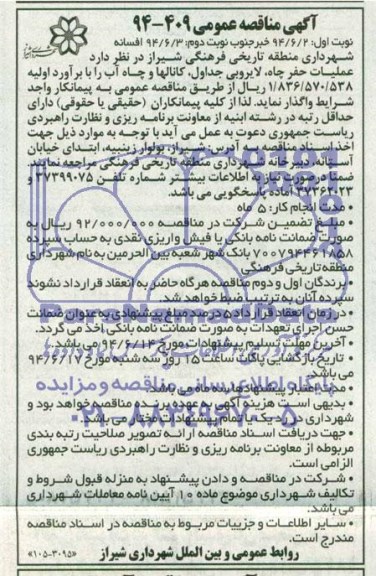 آگهی مناقصه عمومی ۴۰۹-۹۴
نوبت اول: ۹۴/۶/۲ خبرجنوب نوبت دوم: ۹۴/۶/۳ افسانه
شهرداری منطقه تاریخی فرهنگی شیراز در نظر دارد
عملیات حفر چاه، لایروبی جداول، کانالها و چاه آب را با برآورد اولیه
۱/۸۳۶/۵۷۰/۵۳۸ ریال از طریق مناقصه عمومی به پیمانکار واجد
شرایط واگذار نماید. لذا از کلیه پیمانکاران (حقیقی یا حقوقی) دارای
حداقل رتبه در رشته ابنیه از معاونت برنامه ریزی و نظارت راهبردی
ریاست جمهوری دعوت به عمل می آید با توجه به موارد ذیل جهت
اخذ اسناد مناقصه به آدرس: شیراز، بولوار زینبیه، ابتدای خیابان
آستانه، دبیرخانه شهرداری منطقه تاریخی فرهنگی مراجعه نمایند.
ضمنا در صورت نیاز به اطلاعات بیشتر شماره تلفن ۳۷۳۹۹۰۷۵ و
۳۷۳۶۲۰۲۳ آماده پاسخگویی می باشد.
• مدت انجام کار: ۵ ماه
• مبلغ تضمین شرکت در مناقصه ۹۲/۰۰۰/۰۰۰ ریال به
صورت ضمانت نامه بانکی یا فیش واریزی نقدی به حساب سپرده
۷۰۰۷۹۴۴۶۱۸۵۸ بانک شهر شعبه بین الحرمین به نام شهرداری
منطقه تاریخی فرهنگی
• برندگان اول و دوم مناقصه هرگاه حاضر به انعقاد قرارداد نشوند
سپرده آنان به ترتیب ضبط خواهد شد.
• در زمان انعقاد قرارداد ۵ درصد مبلغ پیشنهادی به عنوان ضمانت
حسن اجرای تعهدات به صورت ضمانت نامه بانکی اخذ می گردد.
• آخرین مهلت تسلیم پیشنهادات مورخ ۹۴/۶/۱۴ می باشد.
• تاریخ بازگشایی پاکات ساعت ۱۵ روز سه شنبه مورخ ۹۴/۶/۱۷
می باشد.
• مدت اعتبار پیشنهادها سه ماه می باشد.
• بدیهی است هزینه آگهی به عهده برنده مناقصه خواهد بود و
شهرداری در رد یک یا تمام پیشنهادات مختار می باشد.
• جهت دریافت اسناد مناقصه ارائه تصویر صلاحیت رتبه بندی
مربوطه از معاونت برنامه ریزی و نظارت راهبردی ریاست جمهوری
الزامی است.
• شرکت در مناقصه و دادن پیشنهاد به منزله قبول شروط و
تکالیف شهرداری موضوع ماده ۱۰ آیین نامه معاملات شهرداری
می باشد.
• سایر اطلاعات و جزییات مربوط به مناقصه در اسناد مناقصه
مندرج است.
روابط عمومی و بین الملل شهرداری شیراز
«۱۰۵-۳۰۹۵»
پایگاه اطلاع رسانی مناقصه و مزایده
۰۲۱-۸۸۳۴۹۶۷۰-۵